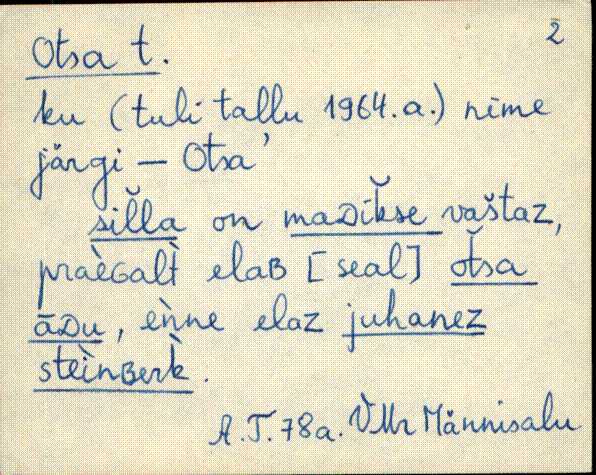 2
Otsa t.
ku (tuli tallu 1964.a.) nime
järgi — Otsa'
sil̆la on maᴅĭkse vaštaᴢ,
praèɢalt̀ elaʙ [seal] ot̆sa
āᴅu, eǹne elaᴢ juhaneᴢ
steìnʙerk̀.
A.T.78a. VMr Männisalu